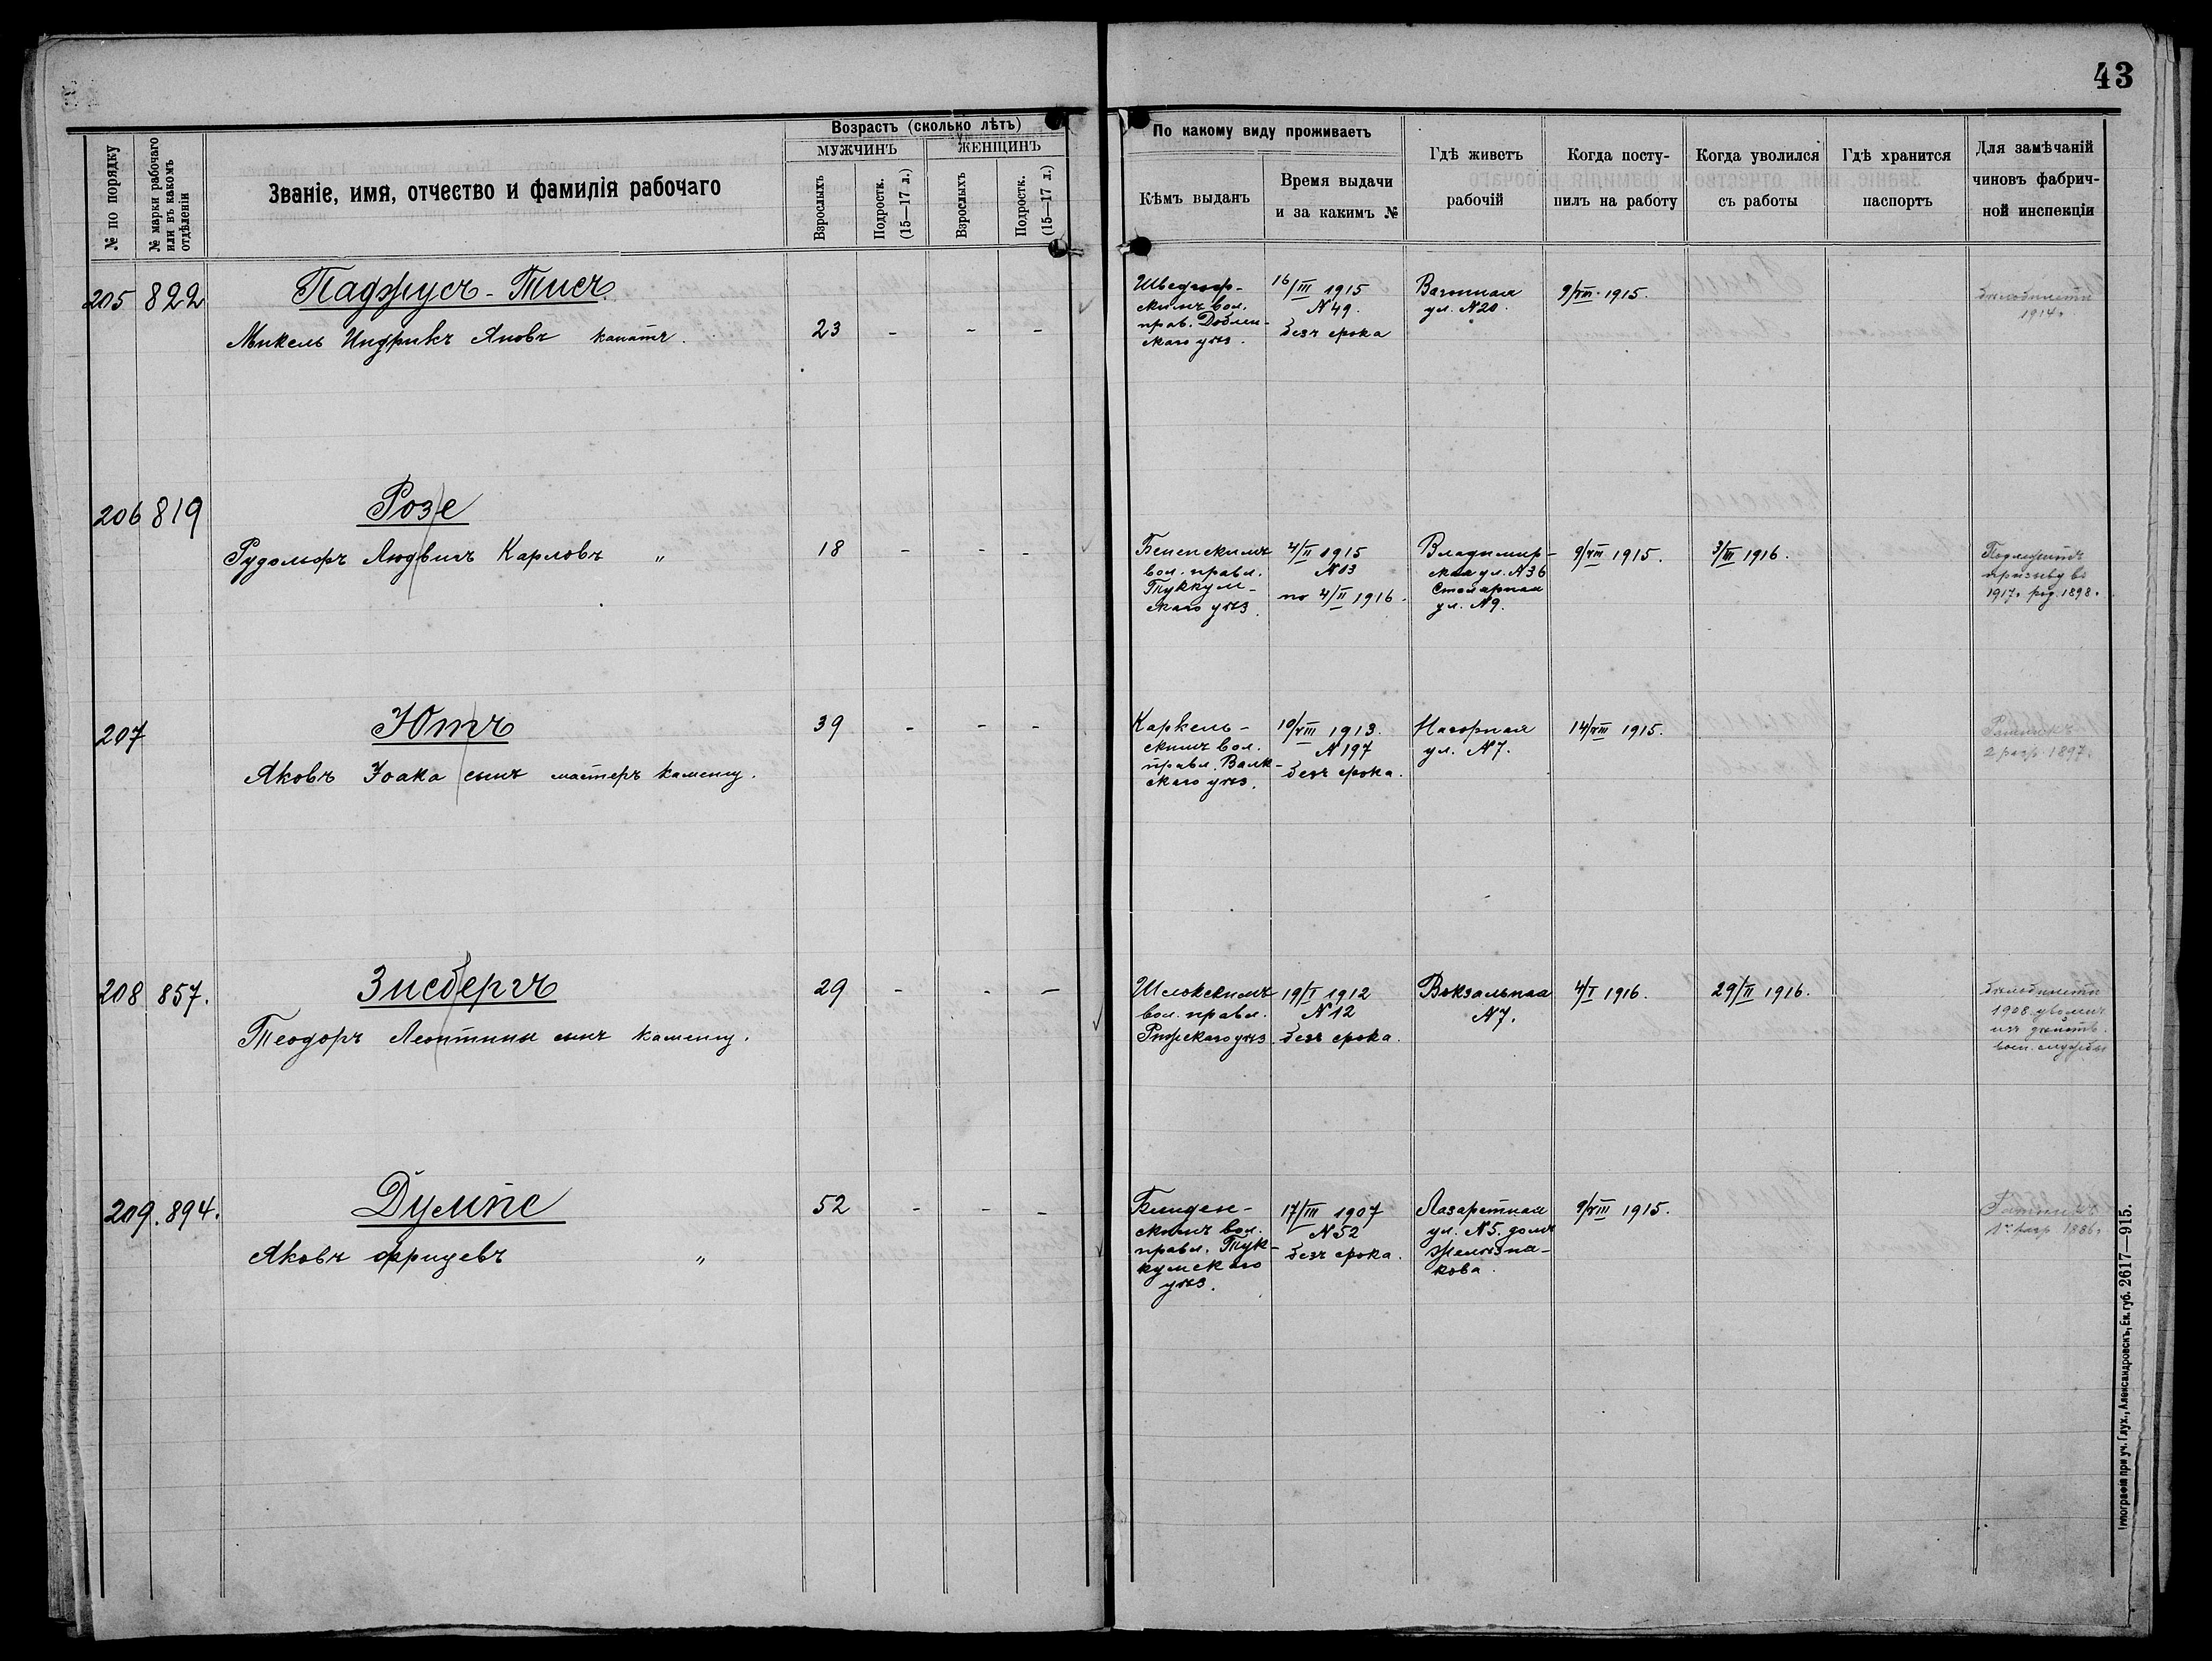 43
Возрастъ (сколько лѣтъ)
МУЖЧИНЪ
ЖЕНЩИНЪ
№ по порядку
№ марки рабочаго или въ какомъ отдѣленіи
Званіе, имя, отчество и фамилія рабочаго
Взрослыхъ
Подростк. (15—17 л.)
Взрослыхъ
Подростк. (15—17 л.)
По какому виду проживаетъ
Кѣмъ выданъ
Время выдачи и за какимъ №
Гдѣ живетъ рабочій
Когда поступилъ на работу
Когда уволился съ работы
Гдѣ хранится паспортъ
Для замѣчаній чиновъ фабричной инспекціи
205 822
Паджусъ-Тисъ
Микель Индрикъ Яновъ канатч.
23 - - -
Шведгоф-
скимъ вол.
прав. Доблен-
скаго уѣз.
16/III 1915
N 49.
безъ срока
Вагонная
ул. N 20.
9/VIII 1915.
бѣлобилетн
1914г.
206 819
Розе
Рудольфъ Людвигъ Карловъ "
18 - - -
вол. правл.
Туккум-
скаго уѣз.
4/II 1915
N 13
по 4/II 1916.
Владимир-
ская ул. N 36
Столарная
ул. N 9.
9/VIII 1915.
3/III 1916.
Подлежитъ
призыву в
1917г. род. 1898г.
207
Ютъ
Яковъ Іоака сынъ мастеръ каменщ.
39 - - -
Каркель-
скимъ вол.
правл. Валк-
скаго уѣз.
10/VIII 1913.
N 197
безъ срока.
Нагорная
ул. N 7.
14/VIII 1915.
Ратникъ
2 разр. 1897г.
208 857.
Зисбергъ
Теодоръ Леонтины сынъ каменщ.
29 - - -
Шлокскимъ
вол. правл.
Рижскаго уѣз
19/I 1912
N 12
безъ срока.
Вокзальная
N 7.
4/I 1916.
29/II 1916.
бѣлобилетн
1908. уволен.
из дѣйств.
воен. службы
209. 894.
Думпе
Яковъ Фрицевъ "
52 - - -
скимъ вол.
правл. Тук-
кумскаго
уѣз.
17/III 1907
N 52
безъ срока.
Лазаретная
ул. N 5. домъ
Желѣзна-
кова.
9/VIII 1915.
Ратникъ
1 разр. 1886г.
Типографія при уч. Глух., Александровскъ, Ек. губ. 2617—915.